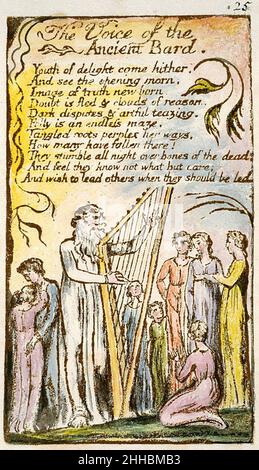 25
The Voice of the
Ancient Bard.
Youth of delight come hither,
And see the opening morn,
Image of truth new born
Doubt is fled & clouds of reason.
Dark disputes & artful teazing.
Folly is an endless maze,
Tangled roots perplex her ways,
How many have fallen there!
They stumble all night over bones of the dead:
And feel they know not what but care:
And wish to lead others when they should be led
alamy
Image ID: 2HBMB3
www.alamy.com